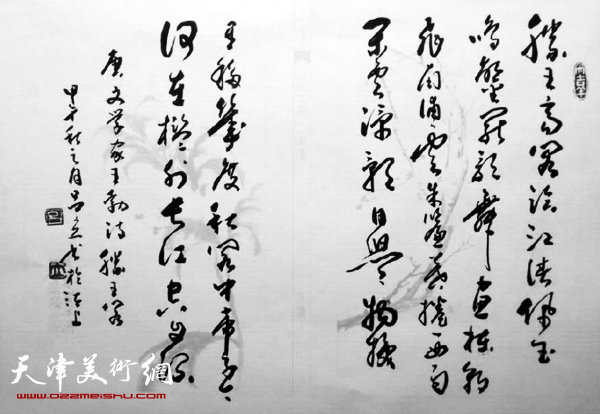 滕王高阁临江渚佩玉
鳴鸞罷歌舞画栋朝
飛南浦雲朱簾暮捲西雨
閒雲潭影日悠悠物換
星移幾度秋阁中帝子今
何在檻外長江空自流
唐文学家王勃诗滕王阁
甲午秋之月吕书於沽上
天津美術網
www.022meishu.com